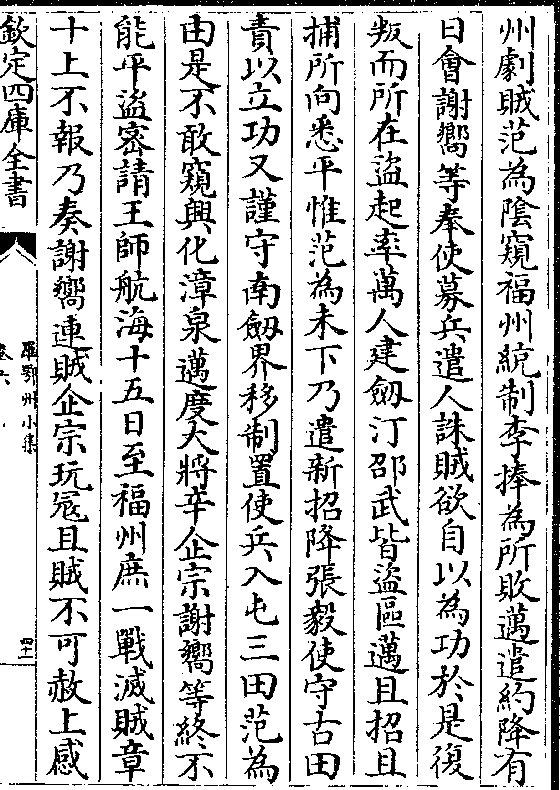 州劇賊范為陰窺福州統制李捧為所敗邁遣約降有
日會謝嚮等奉使募兵遣人誅賊欲自以為功於是復
叛而所在盜起率萬人建劔汀邵武皆盜區邁且招且
捕所向悉平惟范為未下乃遣新招降張毅使守古田
責以立功又謹守南劔界移制置使兵入屯三田范為
由是不敢窺興化漳泉邁度大將辛企宗謝嚮等終不
能平盜密請王師航海十五日至福州庶一戰滅賊章
十上不報乃奏謝嚮連賊企宗玩寇且賊不可赦上感
欽定四庫全書
羅鄂州小集
卷六
四十一